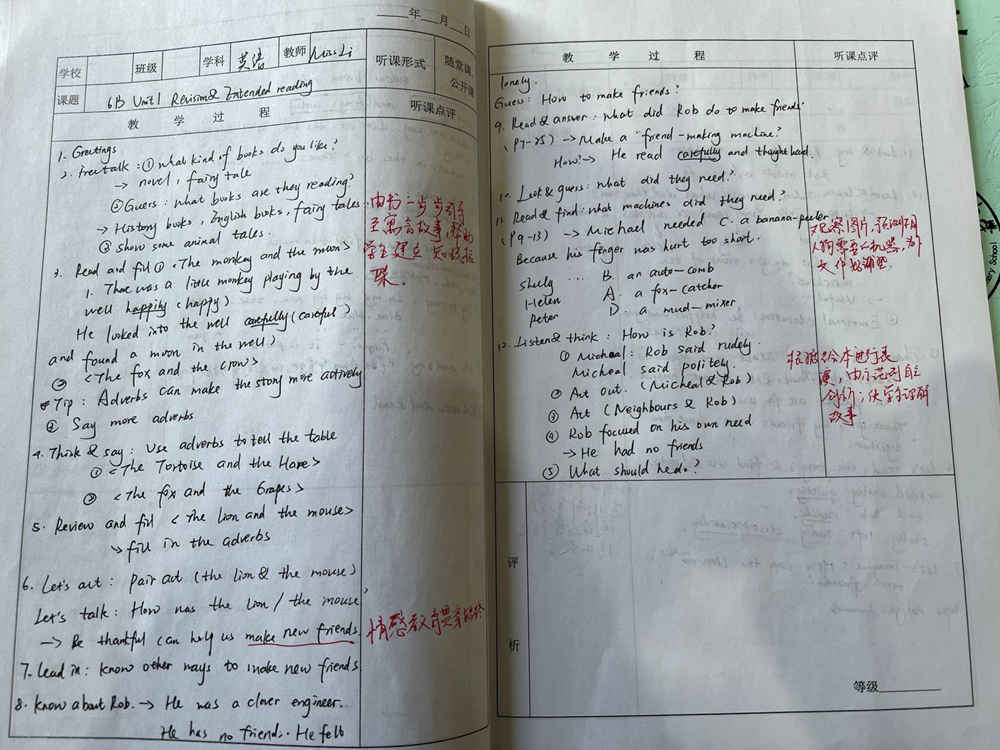 ____年___月___日
学校 班级 学科 英语 教师 Miss Li 听课形式 随堂课、公开课
课题 6B Unit1 Revision& Extended reading
教 学 过 程 听课点评
1. Greetings
2. Free talk: ① what kind of books do you like?
→ novel, fairy tale
② Guess: what books are they reading?
→ History books, English books, fairy tales
③ show some animal tales.
3. Read and fill ① <The monkey and the moon>
1. There was a little monkey playing by the
well happily (happy)
He looked into the well carefully (careful)
and found a moon in the well)
② <The fox and the crow>
Tip: Adverbs can make the story more actively
② Say more adverbs
4. Think & say: Use adverbs to tell the table
① <The Tortoise and the Hare>
② <The fox and the Grapes>
5. Review and fill <The Lion and the mouse>
↘ fill in the adverbs
6. Let's act: Pair act (the lion & the mouse)
Let's talk: How was the lion / the mouse
→ Be thankful can help us make new friends
7. Lead in: know other ways to make new friends
8. Know about Rob. → He was a clever engineer.
He has no friends. He felt
由书一步步引导
至寓言故事,帮助
学生建立知识框
架.
情感教育贯穿始终
教 学 过 程 听课点评
lonely.
Guess: How to make friends?
9. Read & answer: what did Rob do to make friends
(P7-25) → Make a "friend-making machine".
How? → He read carefully and thought hard.
10. Look & guess: what did they need?
11. Read & find: what machines did they need?
(P9-13) → Michael needed C. a banana-peeler
Because his finger was hurt too short.
Shelly ... B. an auto-comb
Helen A. a fox-catcher
Peter D. a mud-mixer
12. Listen & think: How is Rob?
① Micheal: Rob said rudely.
Micheal said politely.
② Act out. (Micheal & Rob)
③ Act (Neighbours & Rob)
④ Rob focused on his own need
→ He had no friends
⑤ What should he do?
观察图片,
根据绘本进行表
演,由示范到自己
创新;使学生理解
故事
评
析
等级________